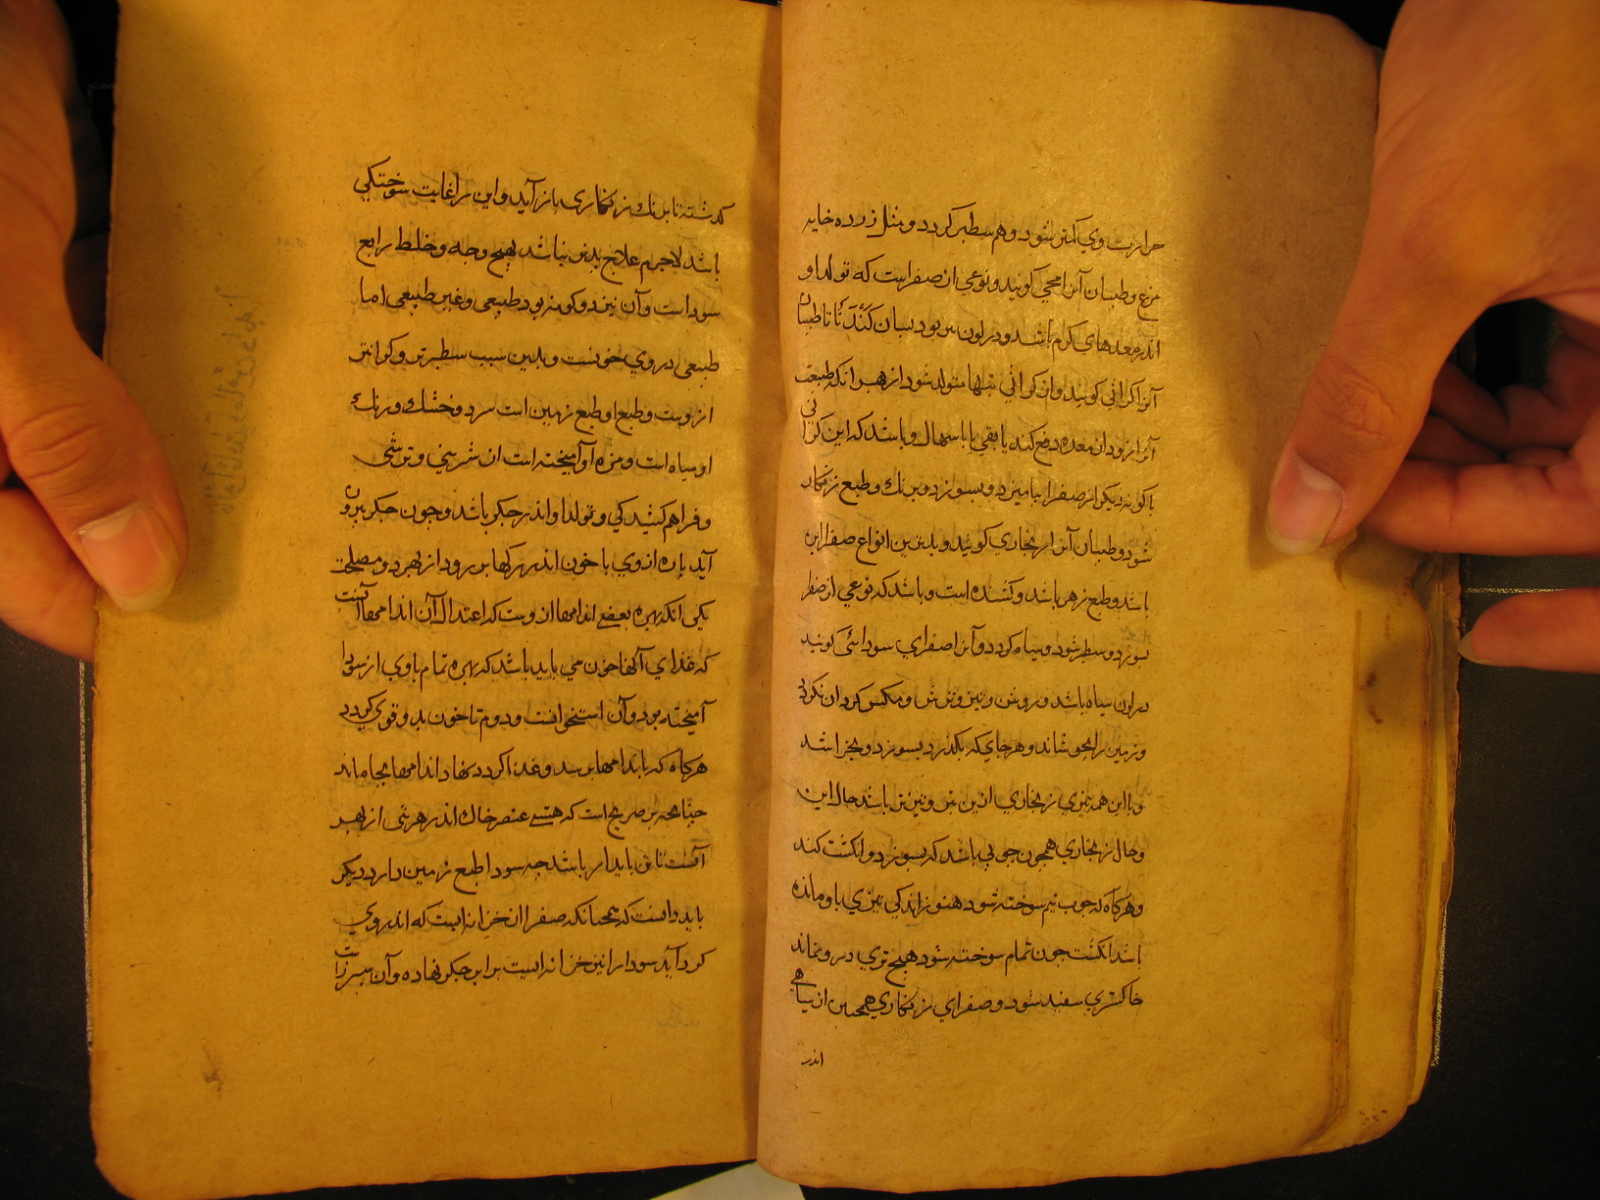 حرارت وي کمتر شود و هم سطبر کردد و مثل زرده خایه
مرغ و طبیبان آنرا محي کویند و نوعي از صفراست که تولد او
اندر معدهاي کرم باشد و در لون سبز بود بسان کندنا تا طبیبان
آنرا کراثي کویند و این کراثي تنها متولد شود از بهر آنکه طبیعت
آنرا زود از معده دفع کند یا بقي یا باسهال و باشد که این کراثي
با کونه دیکر از صفرا بیامیزد و بسوزد و برنك و طبع زنکار
شود و طبیبان آنرا زنجاري کویند و بدترین انواع صفرا این
باشد و طبع زهر باشد و کشنده است و باشد که نوعي از صفرا
بسوزد و سطبر شود و سیاه کردد و آنرا صفراي سودائي کویند
در لون سیاه باشد و روشن و تیز و ترش و مکس کرد آن نکردد
و زمین را بجوشاند و هر جاي که بکذرد بسوزد و بخراشد
و با این همه تیزي زنجاري ازین بتر و تیزتر باشد حال این
و حال زنجاري همچون چوبي باشد که بسوزد و انکشت کند
و هرکاه که چوب نیم سوخته شود هنوز اندکي تیزي با او مانده
باشد انکشت چون تمام سوخته شود هیچ تري درو نماند
خاکستري سفید شود و صفراي زنکاري همچنین از سیاهي
اندر
کذشته تا برنك زنکاري باز آید و این را غایت سوختکي
باشد لاجرم علاج پذیر نباشد بهیچ وجه و خلط رابع
سوداست و آن نیز دو کونه بود طبیعی و غیر طبیعی اما
طبیعی دروي خونست و بدین سبب سطبرتر و کرانتر
ازوست و طبع او طبع زمین است سرد و خشك و رنك
او سیاه است و مزه او آمیخته است از شیریني و ترشي
و فراهم کشیدکي و تولد او اندر جکر باشد و چون جکر بیرون
آید پاره ازوي با خون اندر رکها برود از بهر دو مصلحت
یکی آنکه بهره بعضي اندامها ازوست که اعتدال آن اندامها آنست
که غذاي آنها خون می باید باشد که بهره تمام باوي از سودا
آمیخته بود و آن استخوانست و دوم تا خون بدو قوي کردد
هرکاه که باندامها برسد و غذا کردد نهاد اندامها بجا ماند
چنانچه بر صریح است که هستي عنصر خاك اندر هر شی از بهر
آنست تا تن پایدار باشد چه سودا طبع زمین دارد دیکر
باید دانست که همچنانکه صفرا را خزانه ایست که اندر وي
کرد آید سودا را نیز خزانه ایست برابر جکر نهاده و آن سپرزست